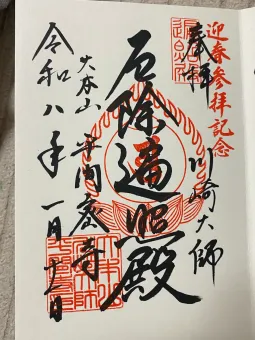 迎春参拝記念
奉拝
川崎大師
厄除遍照殿
大本山
平間寺
令和八年
一月